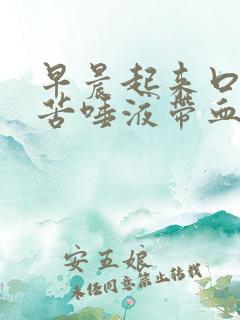 早晨起来口
苦唾液带血
安五娘
未经同意禁止转载